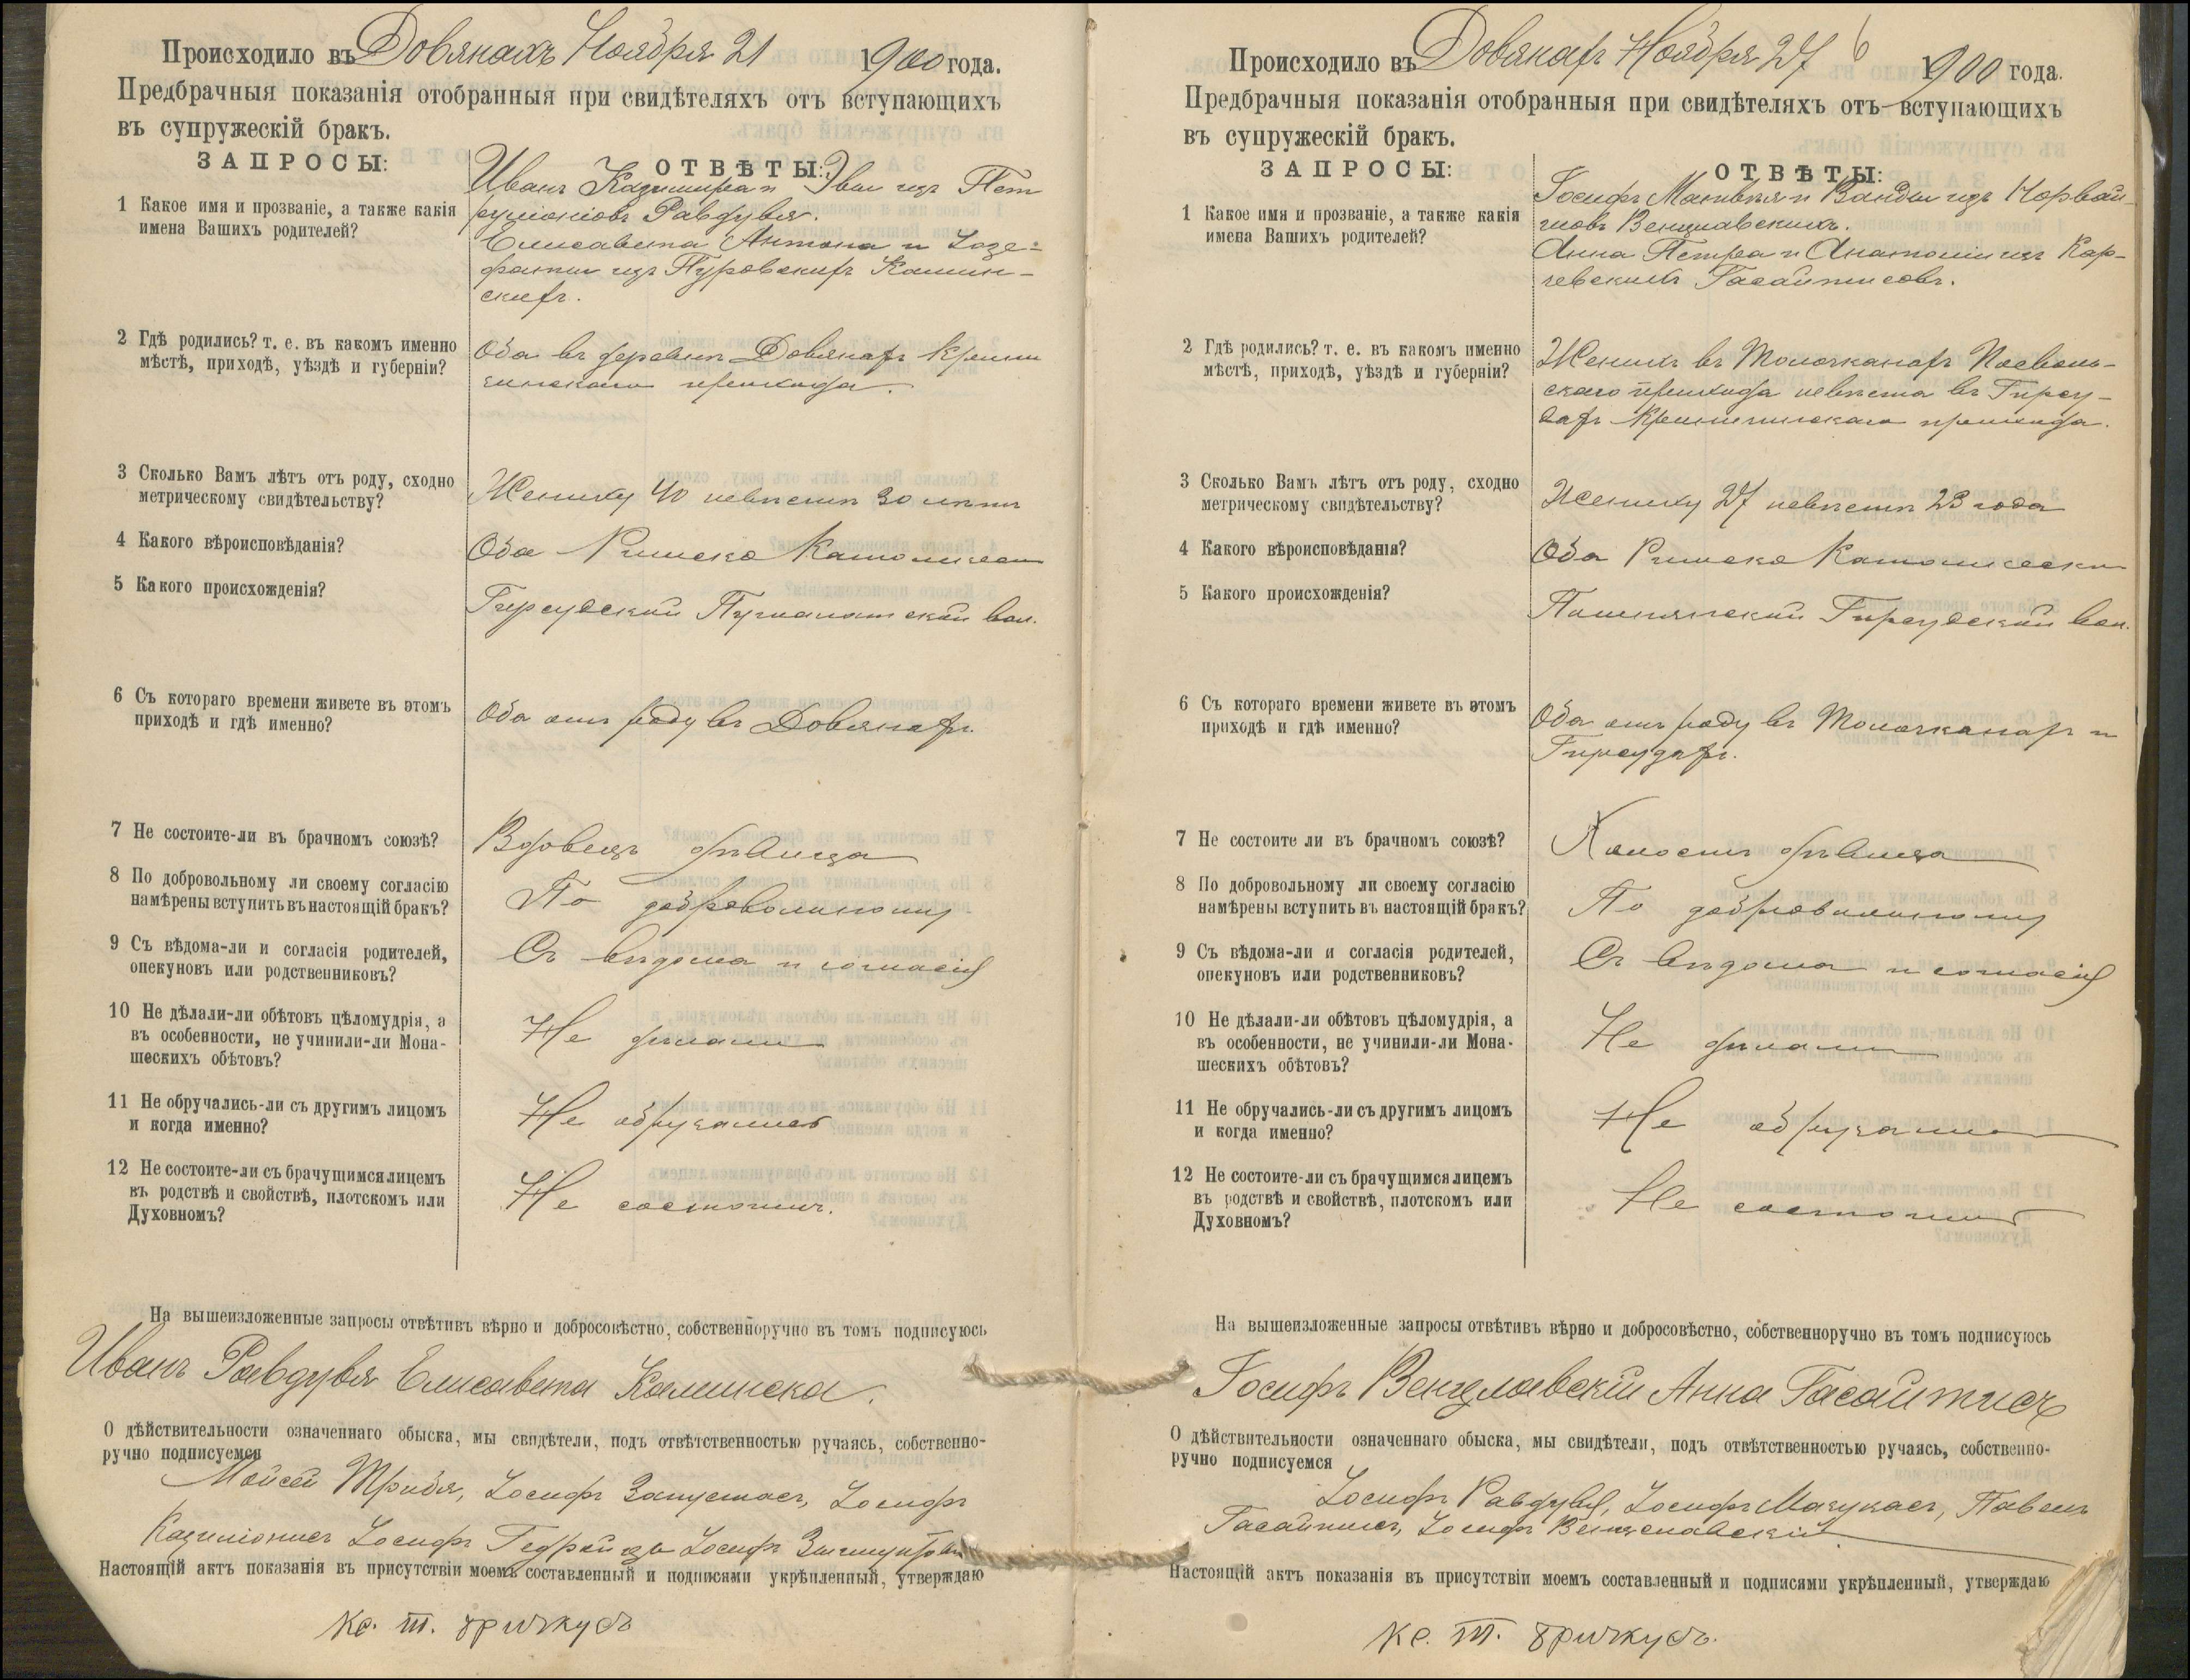 Происходило въ Довянахъ Ноября 21 1900 года.
Предбрачныя показанія отобранныя при свидѣтеляхъ отъ вступающихъ
въ супружескій бракъ.
ЗАПРОСЫ: ОТВѢТЫ:
1 Какое имя и прозваніе, а также какія
имена Вашихъ родителей?
Иванъ Казимира и Эвы изъ Пет
Равдувя.
Елисавета Антона и Іозе-
фаты изъ Пуровскихъ Камин-
скихъ.
2 Гдѣ родились? т. е. въ какомъ именно
мѣстѣ, приходѣ, уѣздѣ и губерніи?
Оба въ деревнѣ Довянахъ Крини
чинскаго прихода.
3 Сколько Вамъ лѣтъ отъ роду, сходно
метрическому свидѣтельству?
Жениху 40 невѣстѣ 30 лѣтъ
4 Какого вѣроисповѣданія?
Оба Римско Католическ
5 Какого происхожденія?
Гирсудскій вол.
6 Съ котораго времени живете въ этомъ
приходѣ и гдѣ именно?
Оба отъ роду въ Довянахъ.
7 Не состоите-ли въ брачномъ союзѣ?
Вдовецъ дѣвица
8 По добровольному ли своему согласію
намѣрены вступить въ настоящій бракъ?
По добровольному
9 Съ вѣдома-ли и согласія родителей,
опекуновъ или родственниковъ?
Съ вѣдома и согласія
10 Не дѣлали-ли обѣтовъ цѣломудрія, а
въ особенности, не учинили-ли Мона-
шескихъ обѣтовъ?
Не дѣлали
11 Не обручались-ли съ другимъ лицомъ
и когда именно?
Не обручались
12 Не состоите-ли съ брачущимся лицемъ
въ родствѣ и свойствѣ, плотскомъ или
Духовномъ?
Не состоимъ.
На вышеизложенные запросы отвѣтивъ вѣрно и добросовѣстно, собственноручно въ томъ подписуюсь
Иванъ Равдувя Елисавета Каминска.
О дѣйствительности означеннаго обыска, мы свидѣтели, подъ отвѣтственностью ручаясь, собственно-
ручно подписуемся
Мойсей Трибя, Іосифъ Запустасъ, Іосифъ
Казиліонисъ Іосифъ Гедройць Іосифъ
Настоящій актъ показанія въ присутствіи моемъ составленный и подписями укрѣпленный, утверждаю
Кс. Т. Бричкусъ
Происходило въ Довянахъ Ноября 27 6 1900 года.
Предбрачныя показанія отобранныя при свидѣтеляхъ отъ вступающихъ
въ супружескій бракъ.
ЗАПРОСЫ: ОТВѢТЫ:
1 Какое имя и прозваніе, а также какія
имена Вашихъ родителей?
Іосифъ Матвѣя и Ванды изъ Норвай-
шовъ Венцлавскихъ.
Анна Петра и Анатоліи изъ Кар-
чевскихъ Гасайтисовъ.
2 Гдѣ родились? т. е. въ какомъ именно
мѣстѣ, приходѣ, уѣздѣ и губерніи?
Женихъ въ Толочканахъ Посволь-
скаго прихода невѣста въ Гирсу-
дахъ Криничинскаго прихода.
3 Сколько Вамъ лѣтъ отъ роду, сходно
метрическому свидѣтельству?
Жениху 27 невѣстѣ 23 года
4 Какого вѣроисповѣданія?
Оба Римско Католическ
5 Какого происхожденія?
Гирсудскій вол.
6 Съ котораго времени живете въ этомъ
приходѣ и гдѣ именно?
Оба отъ роду въ Толочканахъ и
Гирсудахъ.
7 Не состоите ли въ брачномъ союзѣ?
Холостъ дѣвица
8 По добровольному ли своему согласію
намѣрены вступить въ настоящій бракъ?
По добровольному
9 Съ вѣдома-ли и согласія родителей,
опекуновъ или родственниковъ?
Съ вѣдома и согласія
10 Не дѣлали-ли обѣтовъ цѣломудрія, а
въ особенности, не учинили-ли Мона-
шескихъ обѣтовъ?
Не дѣлали
11 Не обручались-ли съ другимъ лицомъ
и когда именно?
Не обручались
12 Не состоите-ли съ брачущимся лицемъ
въ родствѣ и свойствѣ, плотскомъ или
Духовномъ?
Не состоимъ
На вышеизложенные запросы отвѣтивъ вѣрно и добросовѣстно, собственноручно въ томъ подписуюсь
Іосифъ Венцлавскій Анна Гасайтисъ
О дѣйствительности означеннаго обыска, мы свидѣтели, подъ отвѣтственностью ручаясь, собственно-
ручно подписуемся
Іосифъ Равдувя, Іосифъ Мачукасъ, Павелъ
Гасайтисъ, Іосифъ Венцславскій
Настоящій актъ показанія въ присутствіи моемъ составленный и подписями укрѣпленный, утверждаю
Кс. Т. Бричкусъ.